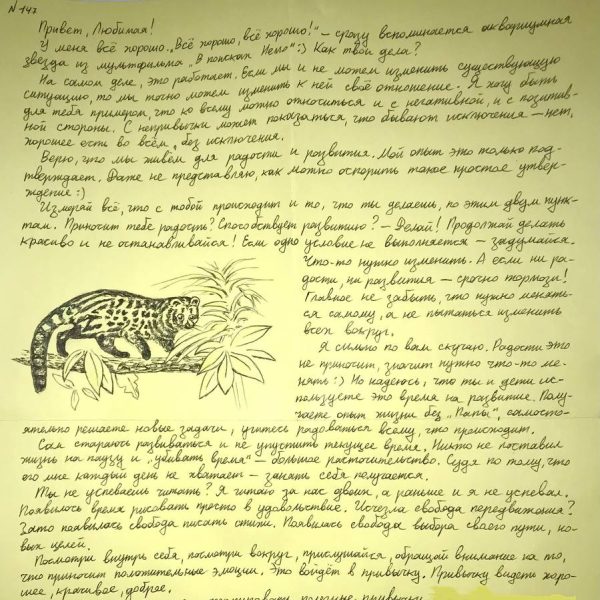 N 147
Привет, Любимая!
У меня всё хорошо. "Всё хорошо, всё хорошо!" – сразу вспоминается аквариумная
звезда из мультфильма "В поисках Немо" :) Как твои дела?
На самом деле, это работает. Если мы и не можем изменить существующую
ситуацию, то мы точно можем изменить к ней своё отношение. Я хочу быть
для тебя примером, что ко всему можно относиться и с негативной, и с позитив-
ной стороны. С непривычки может показаться, что бывают исключения – нет,
хорошее есть во всём, без исключения.
Верю, что мы живём для радости и развития. Мой опыт это только под-
тверждает. Даже не представляю, как можно оспорить такое простое утвер-
ждение :)
Измеряй всё, что с тобой происходит и то, что ты делаешь, по этим двум пунк-
там. Приносит тебе радость? Способствует развитию? – Делай! Продолжай делать
красиво и не останавливайся! Если одно условие не выполняется – задумайся.
Что-то нужно изменить. А если ни ра-
дости, ни развития – срочно тормози!
Главное не забыть, что нужно менять-
ся самому, а не пытаться изменить
всех вокруг.
Я сильно по вам скучаю. Радости это
не приносит, значит нужно что-то ме-
нять :) Но надеюсь, что ты и дети ис-
пользуете это время на развитие. Полу-
чаете опыт жизни без "Папы", самосто-
ятельно решаете новые задачи, учитесь радоваться всему, что происходит.
Сам стараюсь развиваться и не упустить текущее время. Никто не поставил
жизнь на паузу и "убивать время" – большое расточительство. Судя по тому, что
его мне каждый день не хватает – занять себя получается.
Ты не успеваешь читать? Я читаю за нас двоих, а раньше и я не успевал.
Появилось время рисовать просто в удовольствие. Исчезла свобода передвижения?
Зато появилась свобода писать стихи. Появилась свобода выбора своего пути, но-
вых целей.
Посмотри внутрь себя, посмотри вокруг, прислушайся, обращай внимание на то,
что приносит положительные эмоции. Это войдёт в привычку. Привычку видеть хоро-
шее, красивое, доброе.